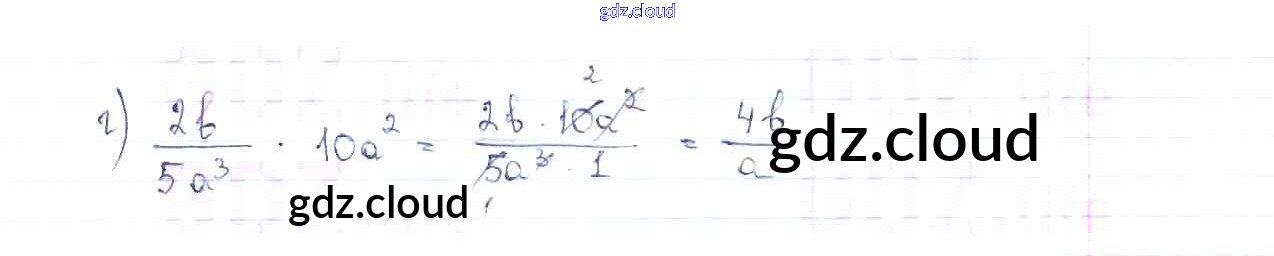 gdz.cloud
г) 2b/5a³ · 10a² = 2b · 10a²/5a³ · 1 = 4b/a
2
gdz.cloud
gdz.cloud